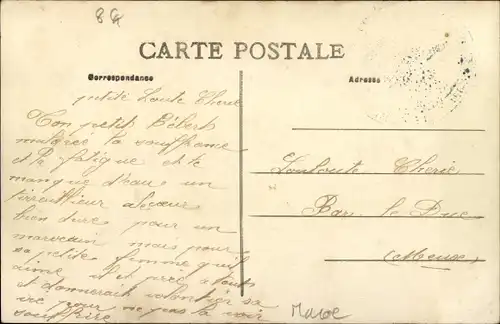 86
CARTE POSTALE
Correspondance
Adresse
petite Loute Cherie
Ton petit Bébert
malgrée la souffrance
et la fatigue et le
manque d'eau un
tirailleur
bien dure pour un
marocain mais pour
sa petite femme qu'il
aime il et prèt a tous
et donnerait volontier sa
vie pour ne pas la voir
souffrire
Louloute Cherie
Bar le Duc
(Meuse)
Maroc